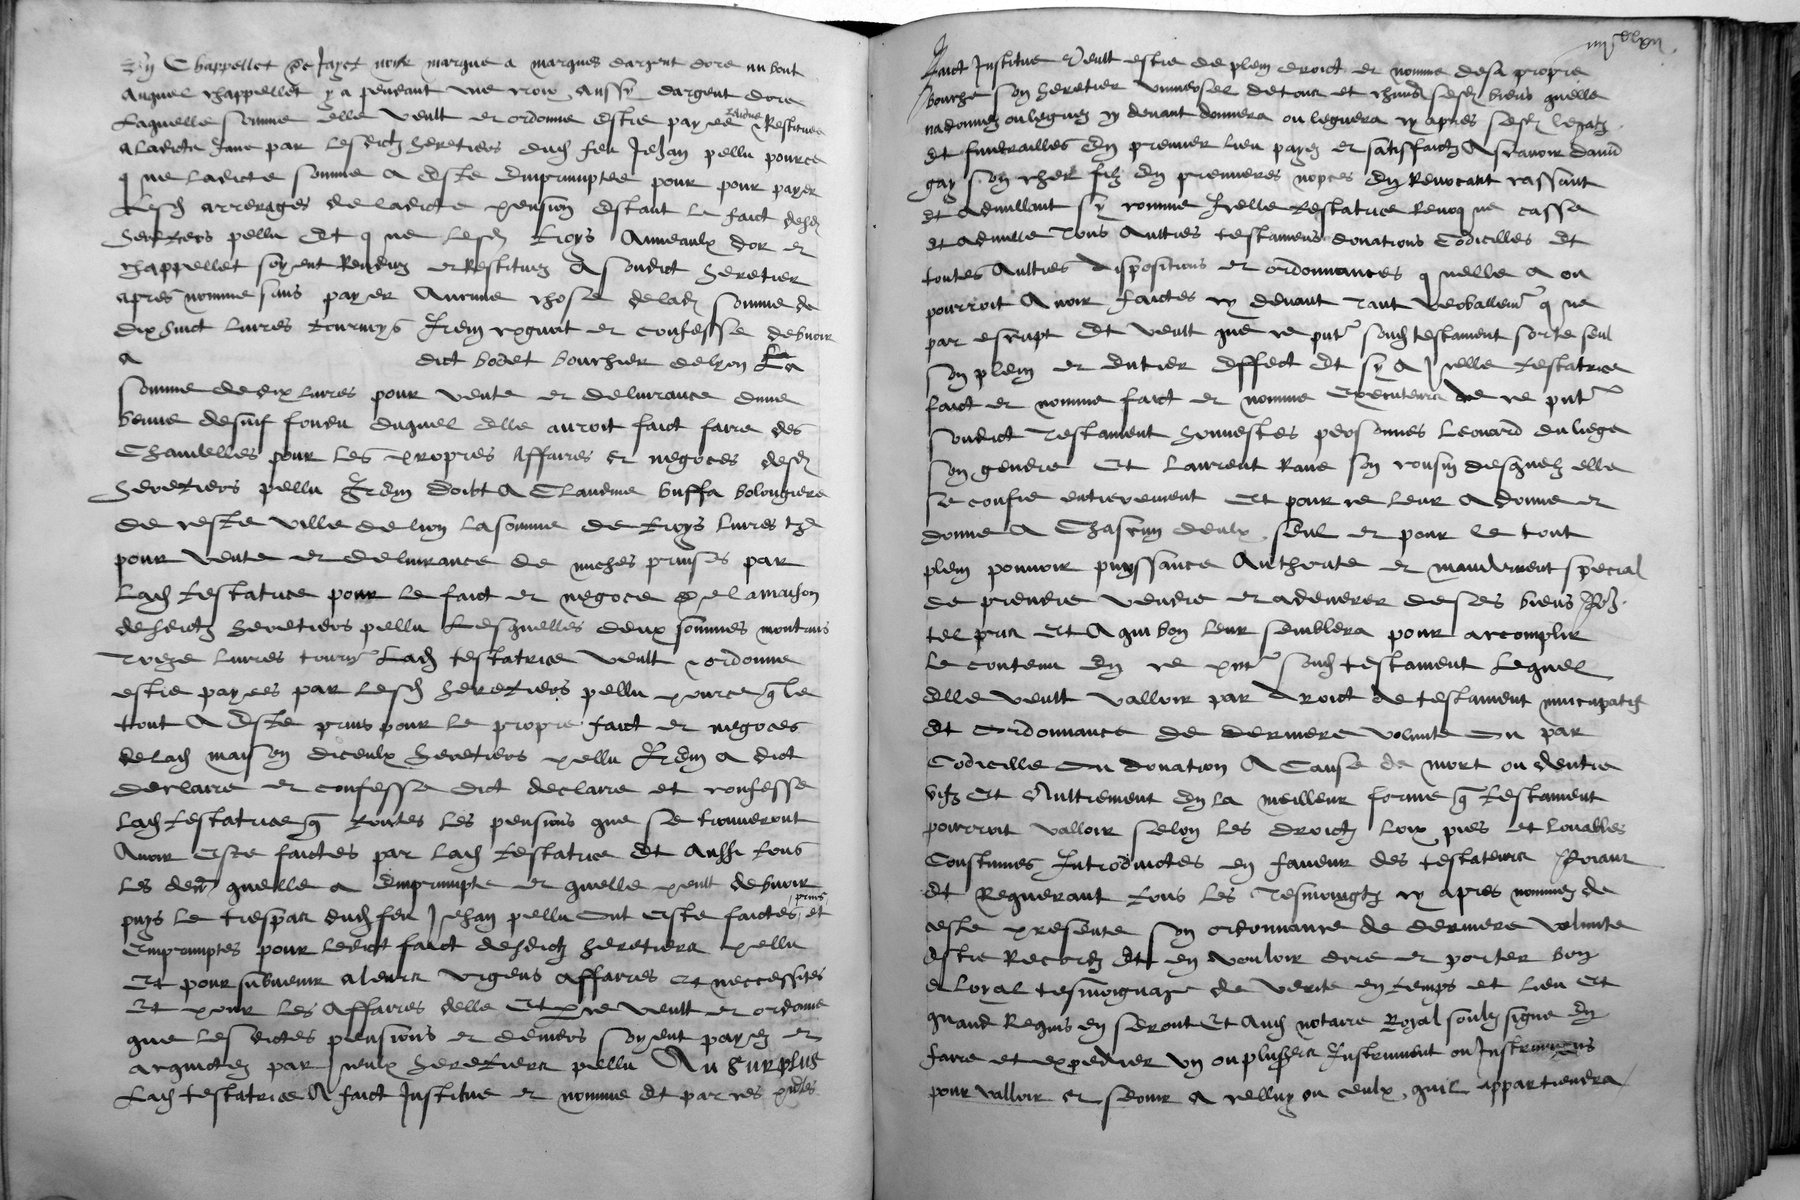 Ung Chappellet de Jayet noir marque a marques dargent dore au bout
Auquel chappellet y a pendant une croix aussy dargent dore
Laquelle somme elle veult et ordonne estre payee rendue & Restituee
a ladicte Jane par lesdictz heretiers dud feu Jehan pellu pource
que ladicte somme a este empromptee pour pour payer
lesd arrerages de ladicte pension estant le faict desd
heretiers pellu Et que lesd troys Anneaulx dor et
chappellet soyent Renduz et Restituez A sondict heretier
apres nomme sans payer Aucune chose de lad somme de
dix huict livres tournoys Item cognoit et confesse debvoir
a dict bodet bouchier de lyon La
somme de dix livres pour vente et delivrance dune
benne de suif fondu duquel elle auroit faict faire des
Chandelles pour les propres Affaires et negoces desd
heretiers pellu Item doibt A Claudine buffa bolongiere
de ceste ville de lion la somme de troys livres tz
pour vente et delivrance de miches prinses par
Lad testatrice pour le faict et negoce de la maison
desdictz heretiers pellu Lesquelles deux sommes montans
Treze livres tournz Lad testatrice veult & ordonne
estre payees par lesd heretiers pellu pource que le
tout A este prins pour le propre faict et negoces
de lad maison diceulx heretiers pellu Item a dict
declaire et confesse dict declaire et confesse
Lad testatrice que toutes les pensions que se trouveront
Avoir este faictes par lad testatrice Et aussi tous
les den quelle a emprompte et quelle peult debvoir
puys le trespas dud feu Jehan pellu ont este faictes prins et
Empromptes pour ledict faict desdictz heretiers pellu
Et pour subvenir a leurs urgens affaires Et neccessites
Et pour les Affaires delle Et pource veult et ordonne
que lesdictes pensions et deniers soyent payez et
acquictez par iceulx heretiers pellu Au surplus
Lad testatrice A faict Institue et nomme Et par ces pntes
faict Institue & veult estre de plein droict et nomme de sa propre
bouche son heretier universel de tous et chuns sesd biens quelle
na donnez ou leguez cy devant donnera ou leguera cy apres sesd legatz
Et funerailles En premier lieu payez et satisfaictz Ascavoir david
gay son cher filz En premieres nopces En Revocant cassant
Et Adnullant sy comme Icelle testatrice Revocque casse
et adnulle Tous Aultres testamens donations Codicilles Et
toutes Aultres dispositions et ordonnances quelle a ou
pourroit Avoir faictes cy devant Tant verballemt que
par escript Et veult que ce pnt sond testament sorte seul
son plein et Entier Effect Et sy A Icelle testatrice
faict et nomme faict et nomme Executeurs de ce pnt
sondict Testament honnestes personnes Leonard du liege
son gendre Et Laurent Rave son cousin desquelz elle
se confie entierement Et pour ce leur A donne et
donne A Chascun deulx seul et pour le tout
plein pouvoir puyssance Authorite et mandement special
de prendre vendre et adenerer de ses biens Pour
tel pris Et A qui bon leur semblera pour accomplir
le contenu En ce pnt sond testament Lequel
Elle veult valloir par droict de testament nuncupatif
Et Ordonnance de derniere volunte Ou par
Codicille Ou donation A Cause de mort ou dentre
vifz Et Aultrement En la meilleur forme que testament
pourroit valloir selon les droictz loix pies et louables
Coustumes Introduictes en faveur des testateurs Priant
Et Requerant tous les Tesmoingtz cy apres nommez de
ceste presente son ordonnance de derniere volunte
Estre Recordz Et en vouloir dire et porter bon
& loyal tesmoignage de verite en temps et lieu Et
quand Requis en seront Et Aud notaire Royal soubz signe En
faire et expedier ung ou plusieurs Instrument ou Instrumens
pour valloir et servir a celluy ou ceulx quil appartiendra